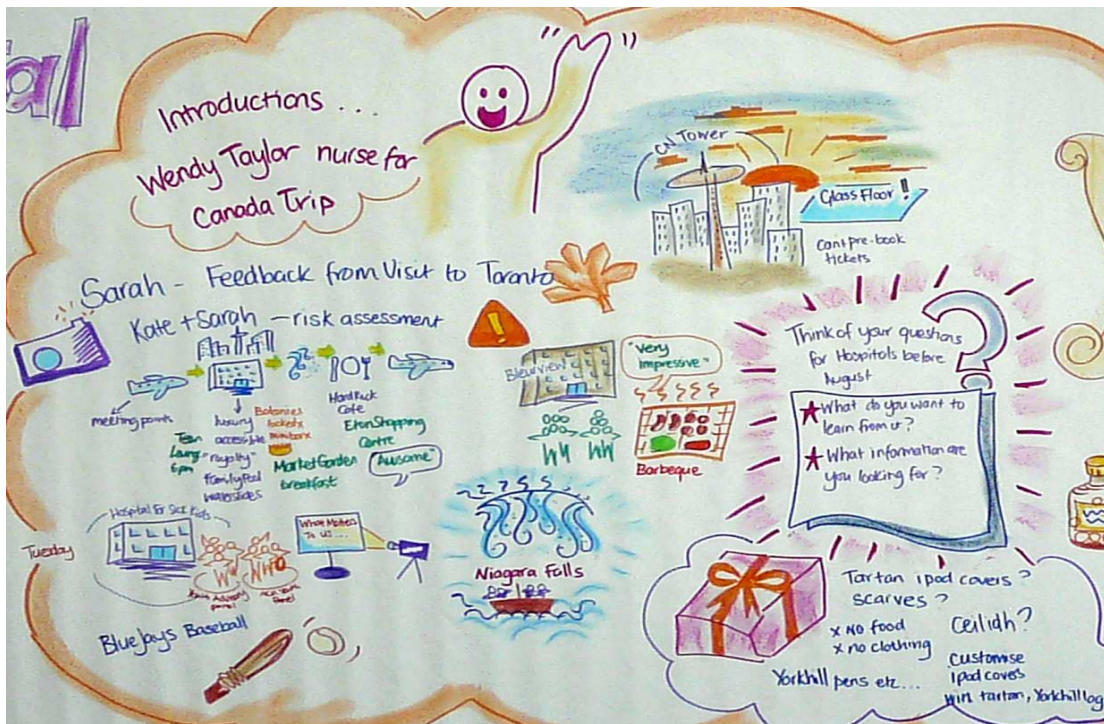 Introductions ...
Wendy Taylor nurse for
Canada Trip
CN Tower
Glass Floor!
Cant pre-book
tickets
Sarah - Feedback from Visit to Toronto
Kate + Sarah - risk assessment
meeting points
luxury
accessible
"royalty"
Family Pool
waterslides
Teen
Lounge
6pm
Balconies
locked x
minibar x
Hard Rock
Cafe
Eton Shopping
Centre
Market Garden
breakfast
"Awsome"
Bleurview
"Very
impressive"
Barbeque
Think of your questions
for Hospitals before
August
What do you want to
learn from us?
What information are
you looking for?
Tuesday
Hospital for Sick Kids
panel
panel
What Matters
To us...
Niagara Falls
Blue Jays Baseball
Tartan ipod covers?
scarves?
x No food
x no clothing
Ceilidh?
Yorkhill pens etc...
customise
ipod covers
with tartan, Yorkhill log